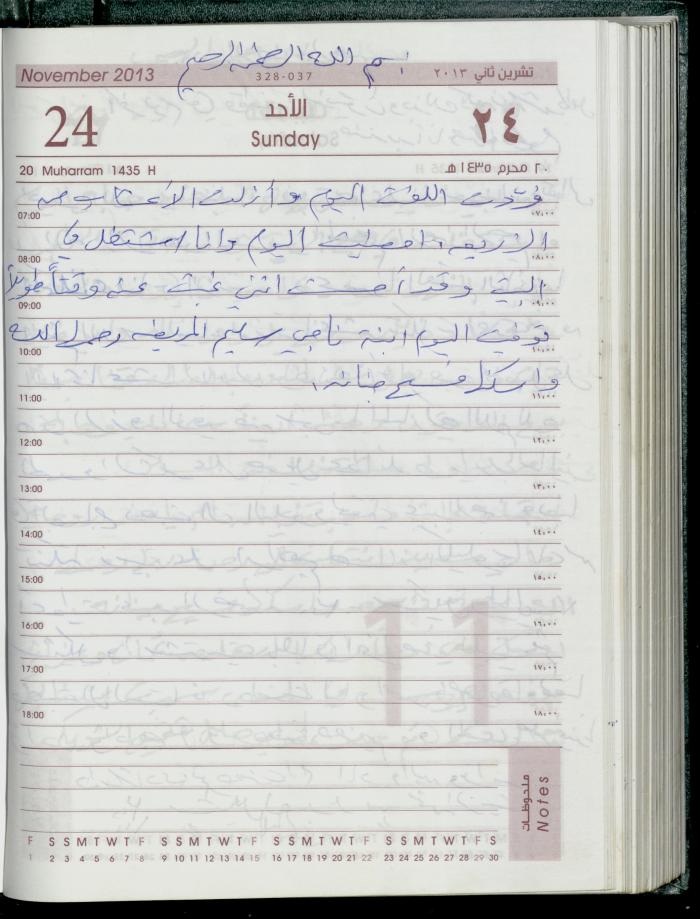 بسم الله الرحمن الرحيم
November 2013
328-037
تشرين ثاني ٢٠١٣
24
الأحد
Sunday
٢٤
20 Muharram 1435 H
٢٠ محرم ١٤٣٥ هـ
اللفت اليوم وأزلت الأعشاب من
07:00 ٠٧:٠٠
اليوم وانا اشتغل في
08:00 ٠٨:٠٠
البيت وقد أحسست انني غبت عنه وقتاً طويلاً
09:00 ٠٩:٠٠
توفيت اليوم ابنة ناجي سليم المريضه رحمها الله
10:00 ١٠:٠٠
واسكنها فسيح جنانه.
11:00 ١١:٠٠
12:00 ١٢:٠٠
13:00 ١٣:٠٠
14:00 ١٤:٠٠
15:00 ١٥:٠٠
16:00 ١٦:٠٠
17:00 ١٧:٠٠
18:00 ١٨:٠٠
11
ملحوظات
Notes
F S S M T W T F S S M T W T F S S M T W T F S S M T W T F S
1 2 3 4 5 6 7 8 9 10 11 12 13 14 15 16 17 18 19 20 21 22 23 24 25 26 27 28 29 30